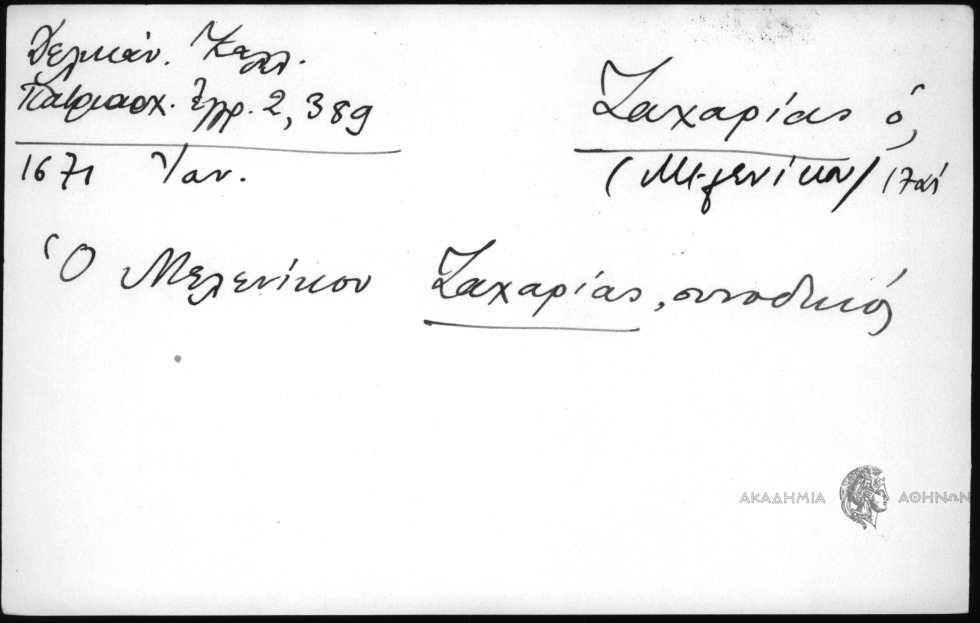 Δελικάν. Καλλ.
Πατριαρχ. ἔγγρ. 2, 389
1671 Ἰαν.
Ζαχαρίας ὁ,
(Μελενίκου) 17αί
Ὁ Μελενίκου Ζαχαρίας, συνοδικός
ΑΚΑΔΗΜΙΑ ΑΘΗΝΩΝ